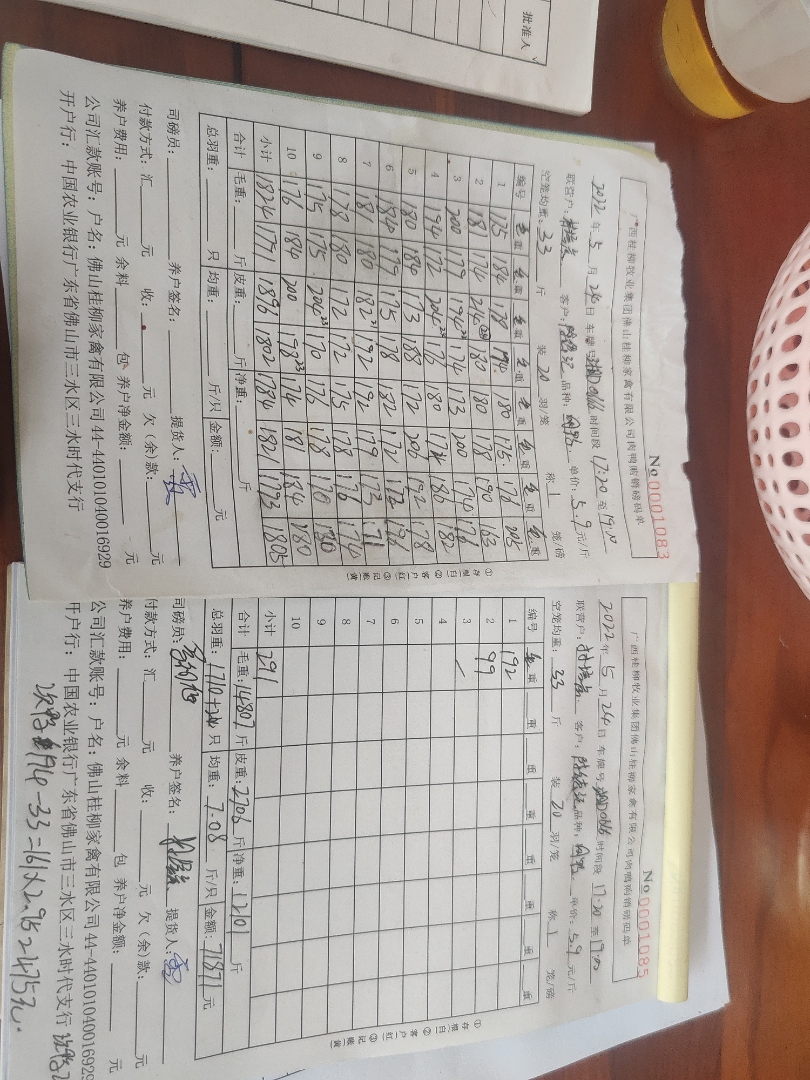 批准人
广西桂柳牧业集团佛山桂柳家禽有限公司肉鸭销磅码单
No 0001083
2022 年 5 月 24 日 车牌号 时间段 17:20 至 19:10
联营户: 客户: 品种: 单价: 5.9 元/斤
空笼均重: 33 斤 装 20 羽/笼 称 1 笼/磅
编号 重 重 重 重 重 重 重 重
1 175 184 178 194 180 175 176 205
2 181 174 214 180 180 178 190 163
3 200 179 194 174 173 200 174 176
4 194 172 204 176 180 174 186 182
5 180 184 173 188 172 200 192 178
6 184 179 175 178 182 172 172 196
7 181 180 182 192 192 179 173 171
8 178 180 172 172 175 178 176 174
9 175 175 204 170 176 178 170 180
10 176 184 200 178 174 181 184 180
小计 1824 1791 1896 1802 1784 1821 1793 1805
合计 毛重: 斤 皮重: 斤 净重: 斤
总羽重: 只 均重: 斤/只 金额: 元
司磅员: 养户签名: 提货人:
付款方式: 汇 元 收: 元 欠(余)款: 元
养户费用: 元 余料 包 养户净金额: 元
公司汇款账号: 户名: 佛山桂柳家禽有限公司 44-440101040016929
开户行: 中国农业银行广东省佛山市三水区三水时代支行
①存根(白) ②客户(红) ③记账(黄)
广西桂柳牧业集团佛山桂柳家禽有限公司肉鸭销磅码单
No 0001085
2022 年 5 月 24 日 车牌号 时间段 17:20 至 19:00
联营户: 客户: 品种: 单价: 5.9 元/斤
空笼均重: 33 斤 装 20 羽/笼 称 1 笼/磅
编号 重 重 重 重 重 重 重 重
1 192
2 99
3
4
5
6
7
8
9
10
小计 291
合计 毛重: 14807 斤 皮重: 2706 斤 净重: 12101 斤
总羽重: 1710+ 只 均重: 7.08 斤/只 金额: 71871 元
司磅员: 养户签名: 提货人:
付款方式: 汇 元 收: 元 欠(余)款: 元
养户费用: 元 余料 包 养户净金额: 元
公司汇款账号: 户名: 佛山桂柳家禽有限公司 44-440101040016929
开户行: 中国农业银行广东省佛山市三水区三水时代支行
次鸭 194-33=161×2.95=475元.
①存根(白) ②客户(红) ③记账(黄)